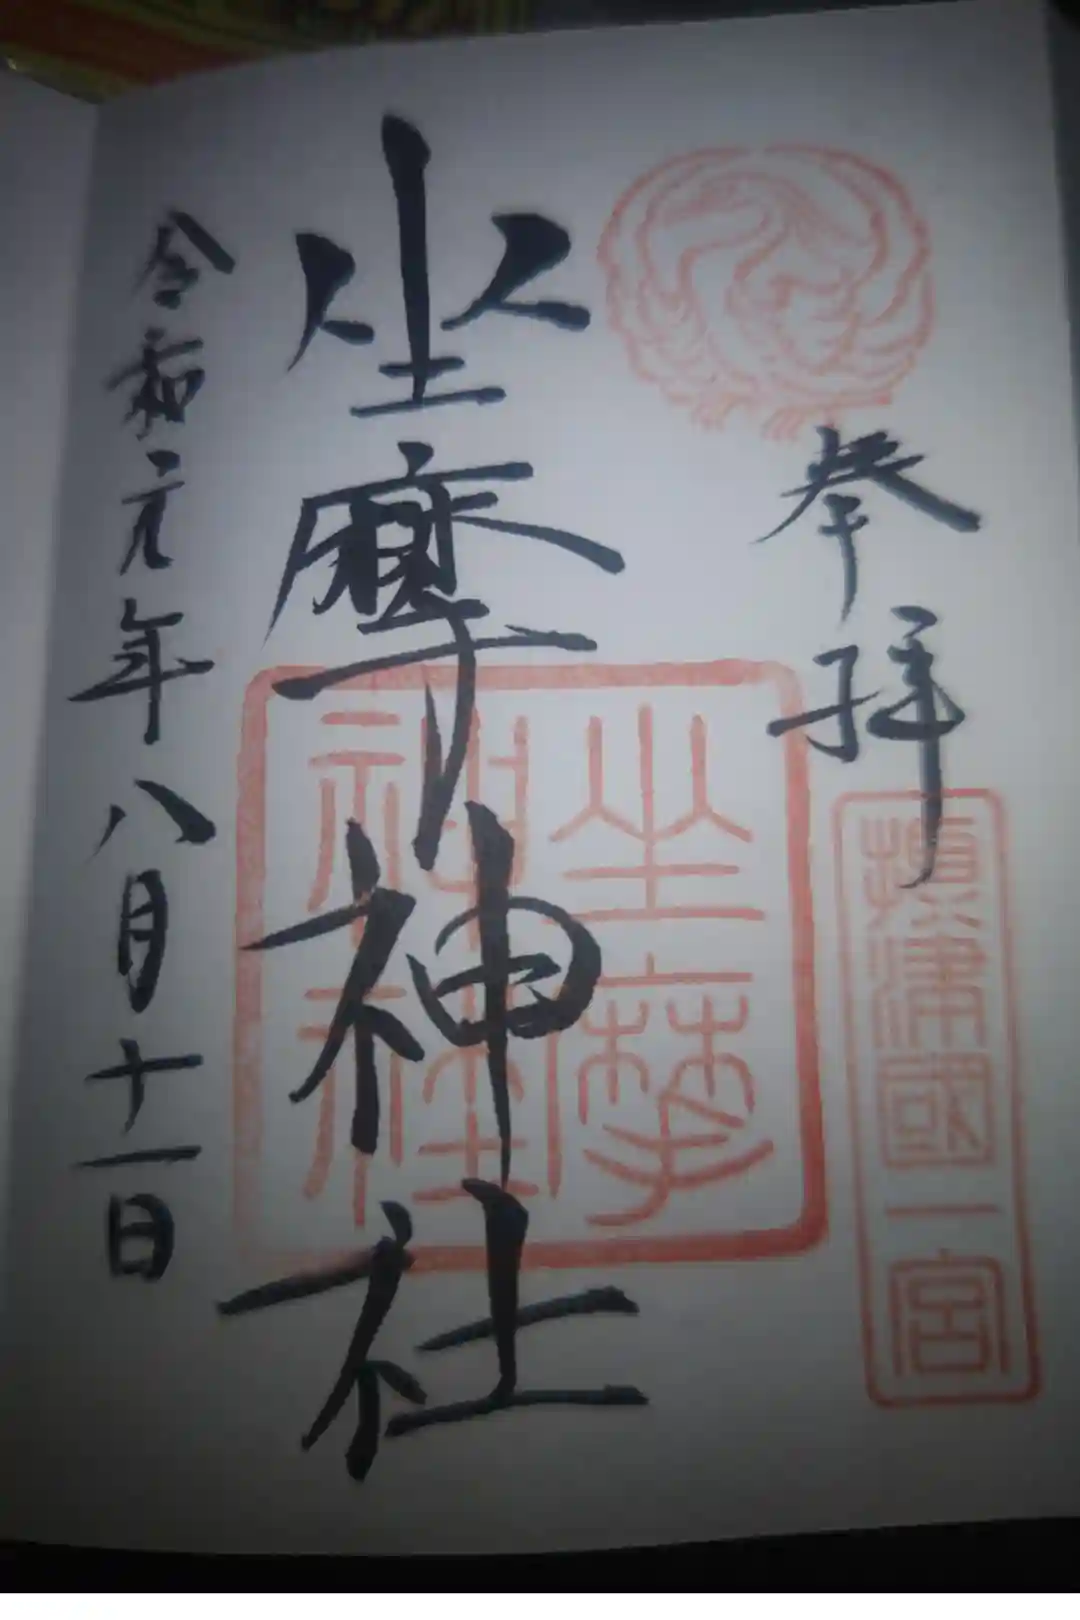 奉拝
攝津國一宮
坐摩神社
坐摩神社
令和元年八月十一日